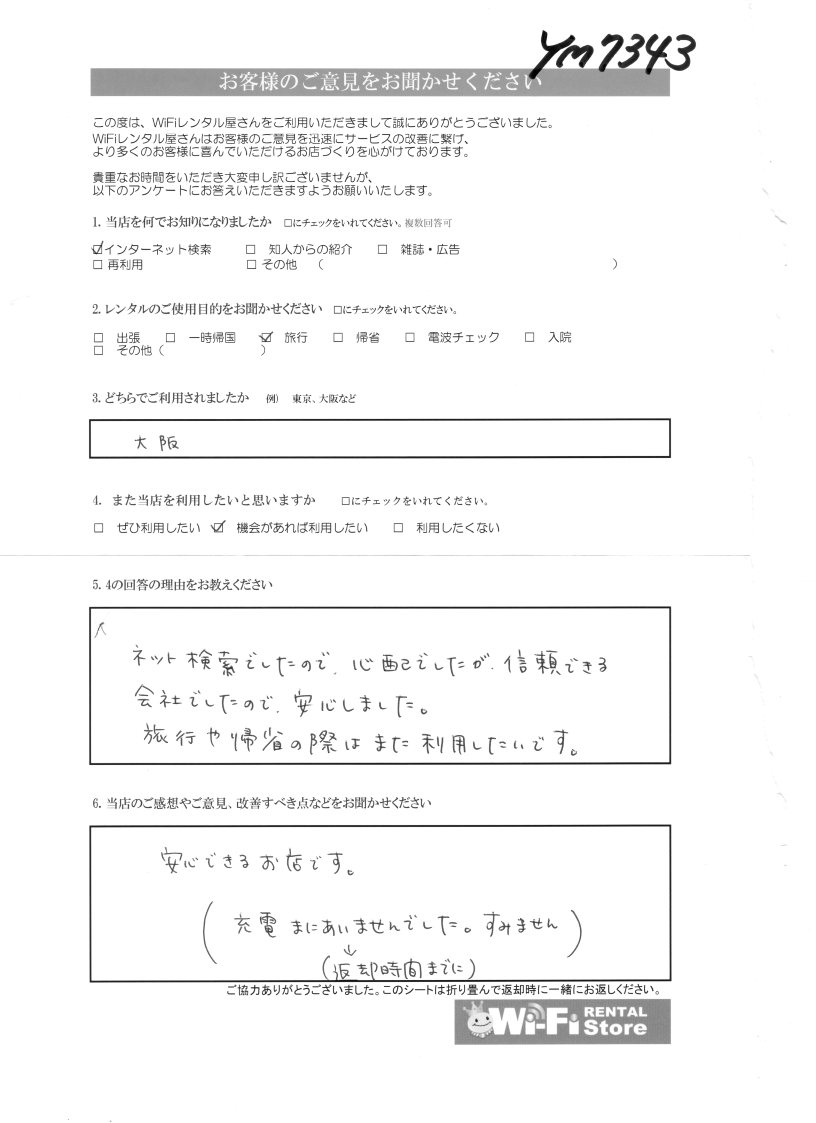 YM7343
お客様のご意見をお聞かせください
この度は、WiFiレンタル屋さんをご利用いただきまして誠にありがとうございました。
WiFiレンタル屋さんはお客様のご意見を迅速にサービスの改善に繋げ、
より多くのお客様に喜んでいただけるお店づくりを心がけております。
貴重なお時間をいただき大変申し訳ございませんが、
以下のアンケートにお答えいただきますようお願いいたします。
1. 当店を何でお知りになりましたか □にチェックをいれてください。複数回答可
☑インターネット検索 □ 知人からの紹介 □ 雑誌・広告
□ 再利用 □ その他 ( )
2. レンタルのご使用目的をお聞かせください □にチェックをいれてください。
□ 出張 □ 一時帰国 ☑ 旅行 □ 帰省 □ 電波チェック □ 入院
□ その他 ( )
3. どちらでご利用されましたか 例) 東京、大阪など
大阪
4. また当店を利用したいと思いますか □にチェックをいれてください。
□ ぜひ利用したい ☑ 機会があれば利用したい □ 利用したくない
5. 4の回答の理由をお教えください
ネット検索でしたので、心配でしたが、信頼できる
会社でしたので、安心しました。
旅行や帰省の際はまた利用したいです。
6. 当店のご感想やご意見、改善すべき点などをお聞かせください
安心できるお店です。
(充電まにあいませんでした。すみません)
↓
(返却時間までに)
ご協力ありがとうございました。このシートは折り畳んで返却時に一緒にお返しください。
Wi-Fi RENTAL Store